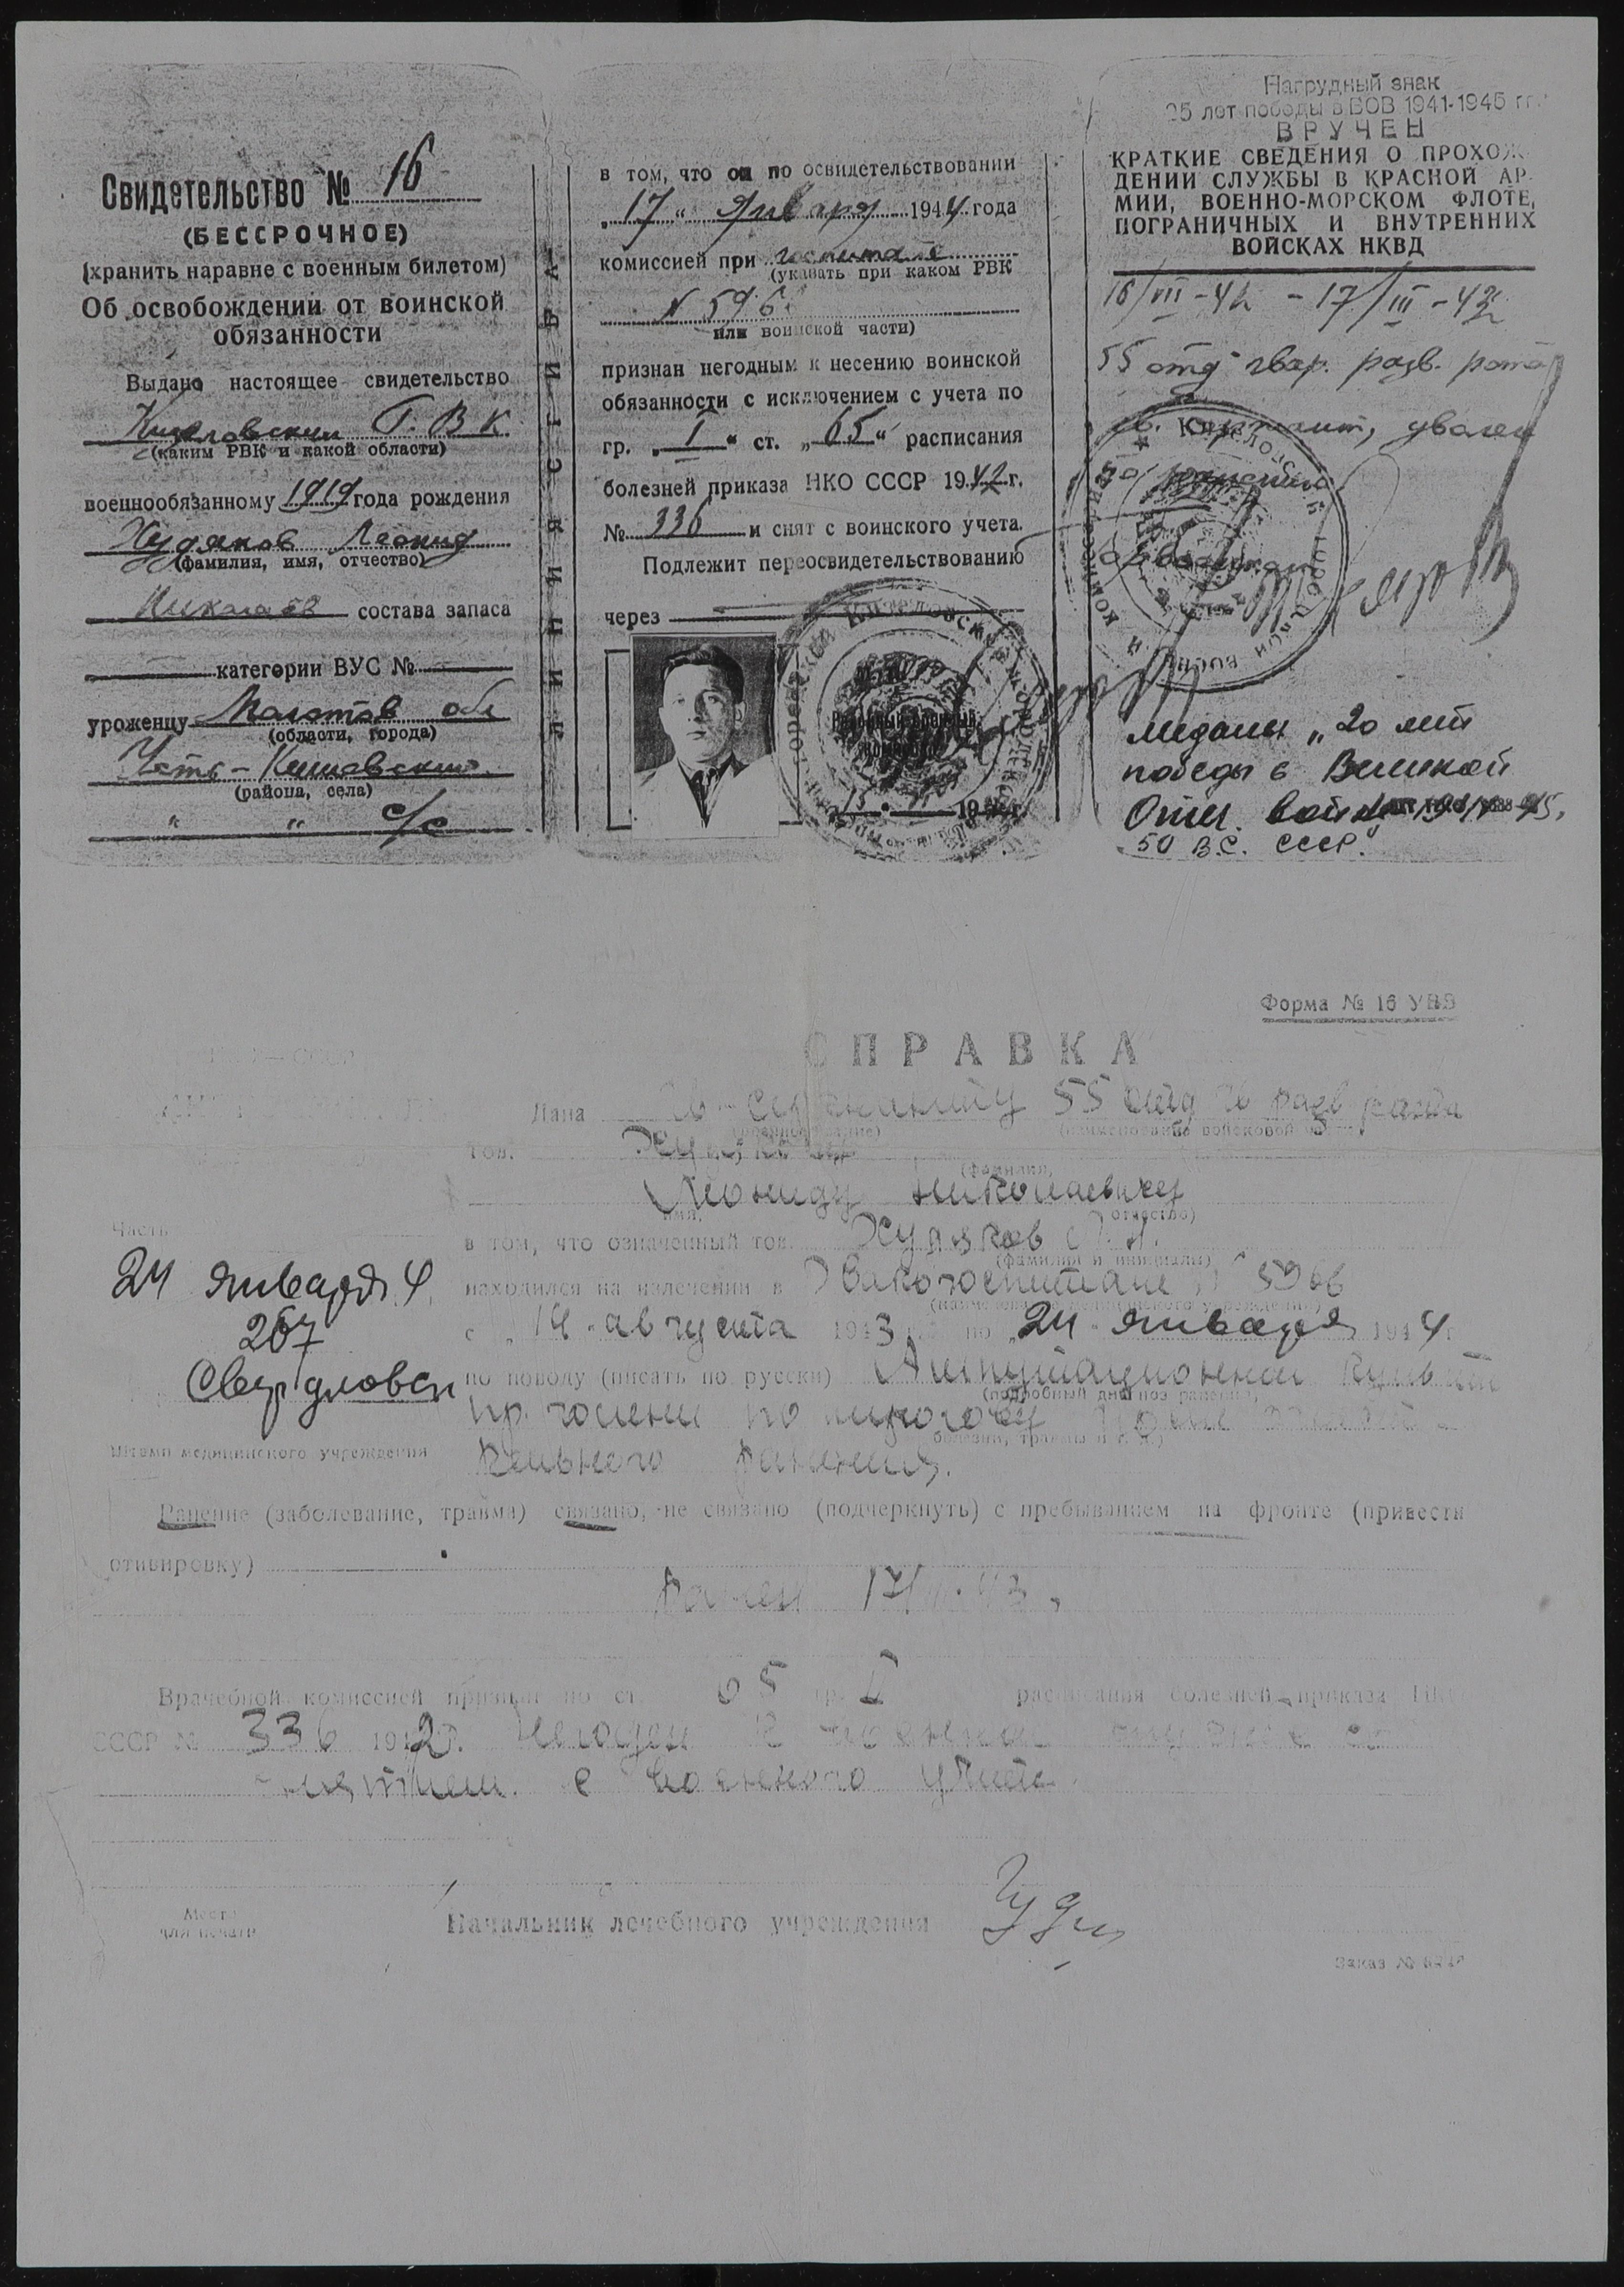 Свидетельство № 16
(БЕССРОЧНОЕ)
(хранить наравне с военным билетом)
Об освобождении от воинской
обязанности
Выдано настоящее свидетельство
Г. В К
(каким РВК и какой области)
военнообязанному 1919 года рождения
Худяков Леонид
(фамилия, имя, отчество)
Николаев состава запаса
категории ВУС №
уроженцу Молотов обл
(области, города)
(района, села)
" " с/с
ЛИНИЯ СГИБА
в том, что он по освидетельствовании
"17" Января 1944 года
комиссией при госпитале
(указать при каком РВК
N 596
или воинской части)
признан негодным к несению воинской
обязанности с исключением с учета по
гр. "I" ст. "65" расписания
болезней приказа НКО СССР 1942 г.
№ 336 и снят с воинского учета.
Подлежит переосвидетельствованию
через
Нагрудный знак
25 лет победы в ВОВ 1941-1945 гг.
ВРУЧЕН
КРАТКИЕ СВЕДЕНИЯ О ПРОХОЖ-
ДЕНИИ СЛУЖБЫ В КРАСНОЙ АР-
МИИ, ВОЕННО-МОРСКОМ ФЛОТЕ,
ПОГРАНИЧНЫХ И ВНУТРЕННИХ
ВОЙСКАХ НКВД
16/VII-42 - 17/III-43
55 отд гвар. разв. рота
уволен
медаль „20 лет
победы в Великой
Отеч. войне 1941-45.
50 В.С. СССР."
Форма № 16 УВВ
СПРАВКА
Дана 55 отд разв рота
(наименование войсковой части)
тов. Худякову
(фамилия,
Леониду Николаевичу
имя, отчество)
в том, что означенный тов. Худяков Л. Н.
(фамилия и инициалы)
находился на излечении в Эвакогоспитале N 5966
(наименование медицинского учреждения)
с "14" августа 1943 г. по "24" января 1944 г.
по поводу (писать по русски) Ампутационной культи
(подробный диагноз ранения,
пр. голени по поводу
болезни, травмы и т. д.)
ранения.
Часть
24 января 4
267
Свердловск
Штамп медицинского учреждения
Ранение (заболевание, травма) связано, не связано (подчеркнуть) с пребыванием на фронте (привести
отивировку)
Ранен 17
Врачебной комиссией признан по ст. 65 гр. I расписания болезней приказа НКО
СССР № 336 1942 г. Негоден к военной службе со
снятием с военного учета
Место
для печати
Начальник лечебного учреждения
Заказ №